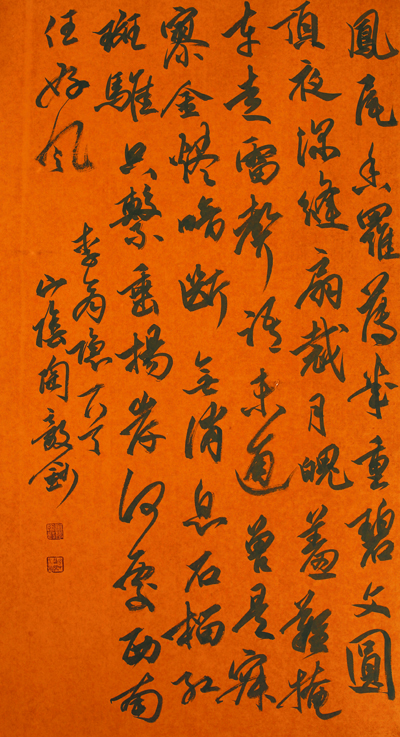 鳳尾香羅薄幾重碧文圓
頂夜深縫扇裁月魄羞難掩
车走雷聲語未通曾是寂
寥金燼暗斷無消息石榴紅
斑騅只繫垂楊岸何處西南
任好風
李商隱
山陰陶